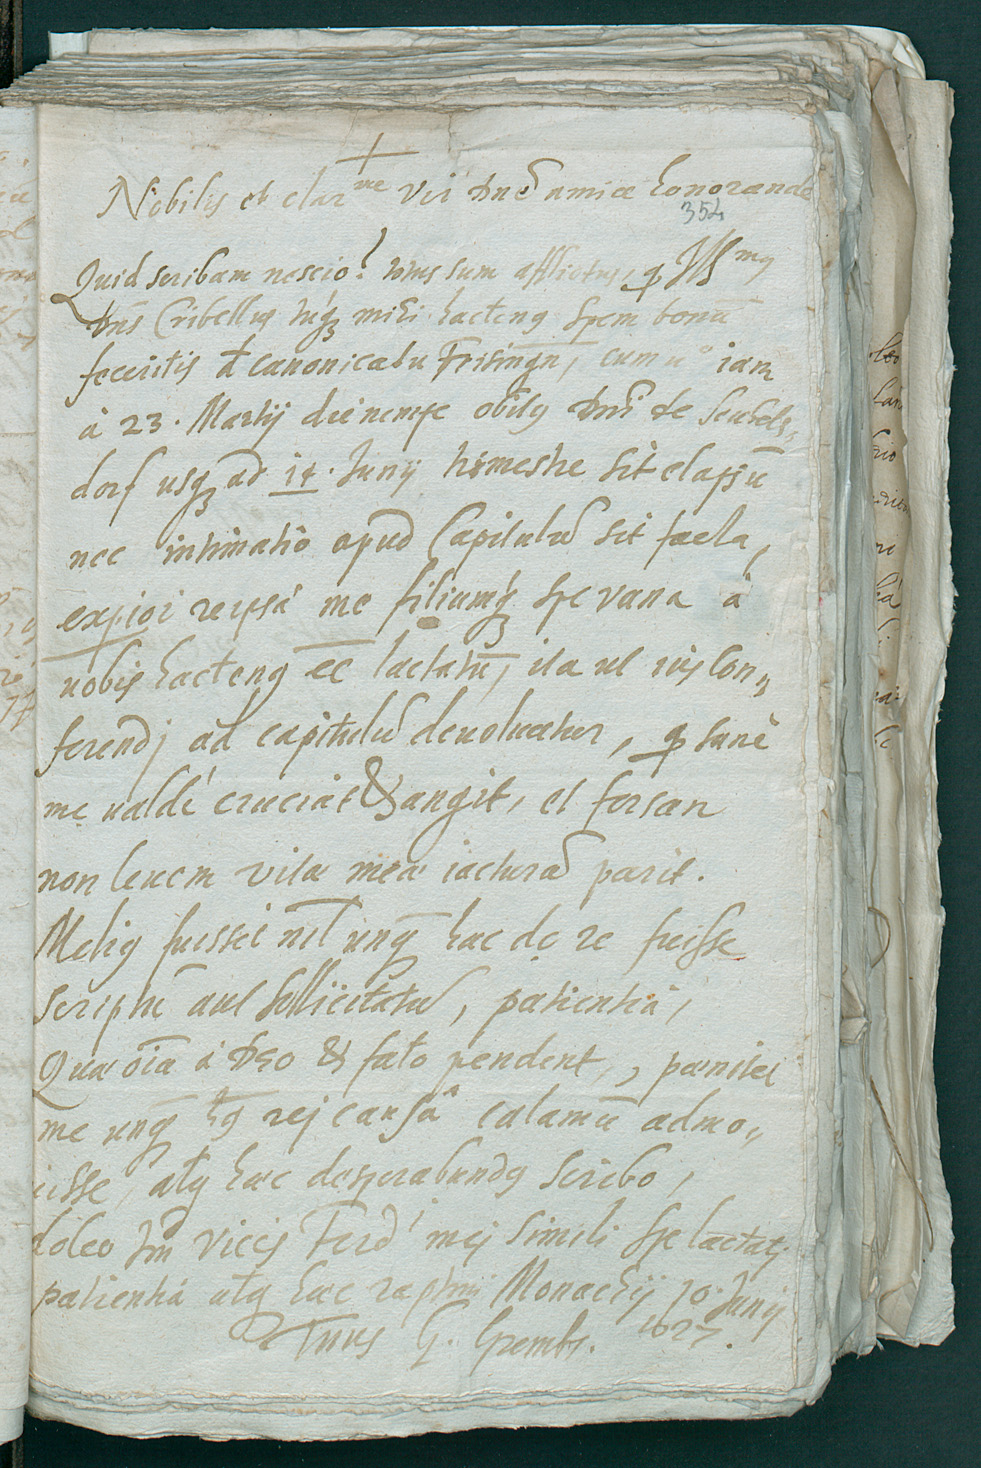 Nobilis et clar^me Vir dnē amice honorande
354
Quid scribam nescio? totus sum afflictus, q Ill^mus
dns Cribellus tuq mihi hactenus spem bonā
feceritis de canonicatu Frisingn, cum u° iam
à 23. Martij die nempe obitus dni de
dorf usq ad 14. Junij trimestre sit elapsū
nec intimatio apud Capitulū sit facta,
experior reipsâ me filiumq spe vana à
uobis hactenus eē lactatū, ita ut ius con„
ferendj ad capitulū deuoluatur, q sanè
me ualdè cruciat & angit, et forsan
non leuem vitæ meæ iacturā pariet.
Melius fuisset nil unq hac de re fuisse
scriptū aut sollicitatū, patientia,
Quia oīa à Deo & fato pendent, pœnitet
me unq hus rej causâ calamū admo„
uisse, atq hæc desperabundus scribo,
doleo vicē Ferd^i mej simili spe lactatj
patientia atq hæc raptim Monachij 10. Junij
1627.
Tuus G. Grembs.